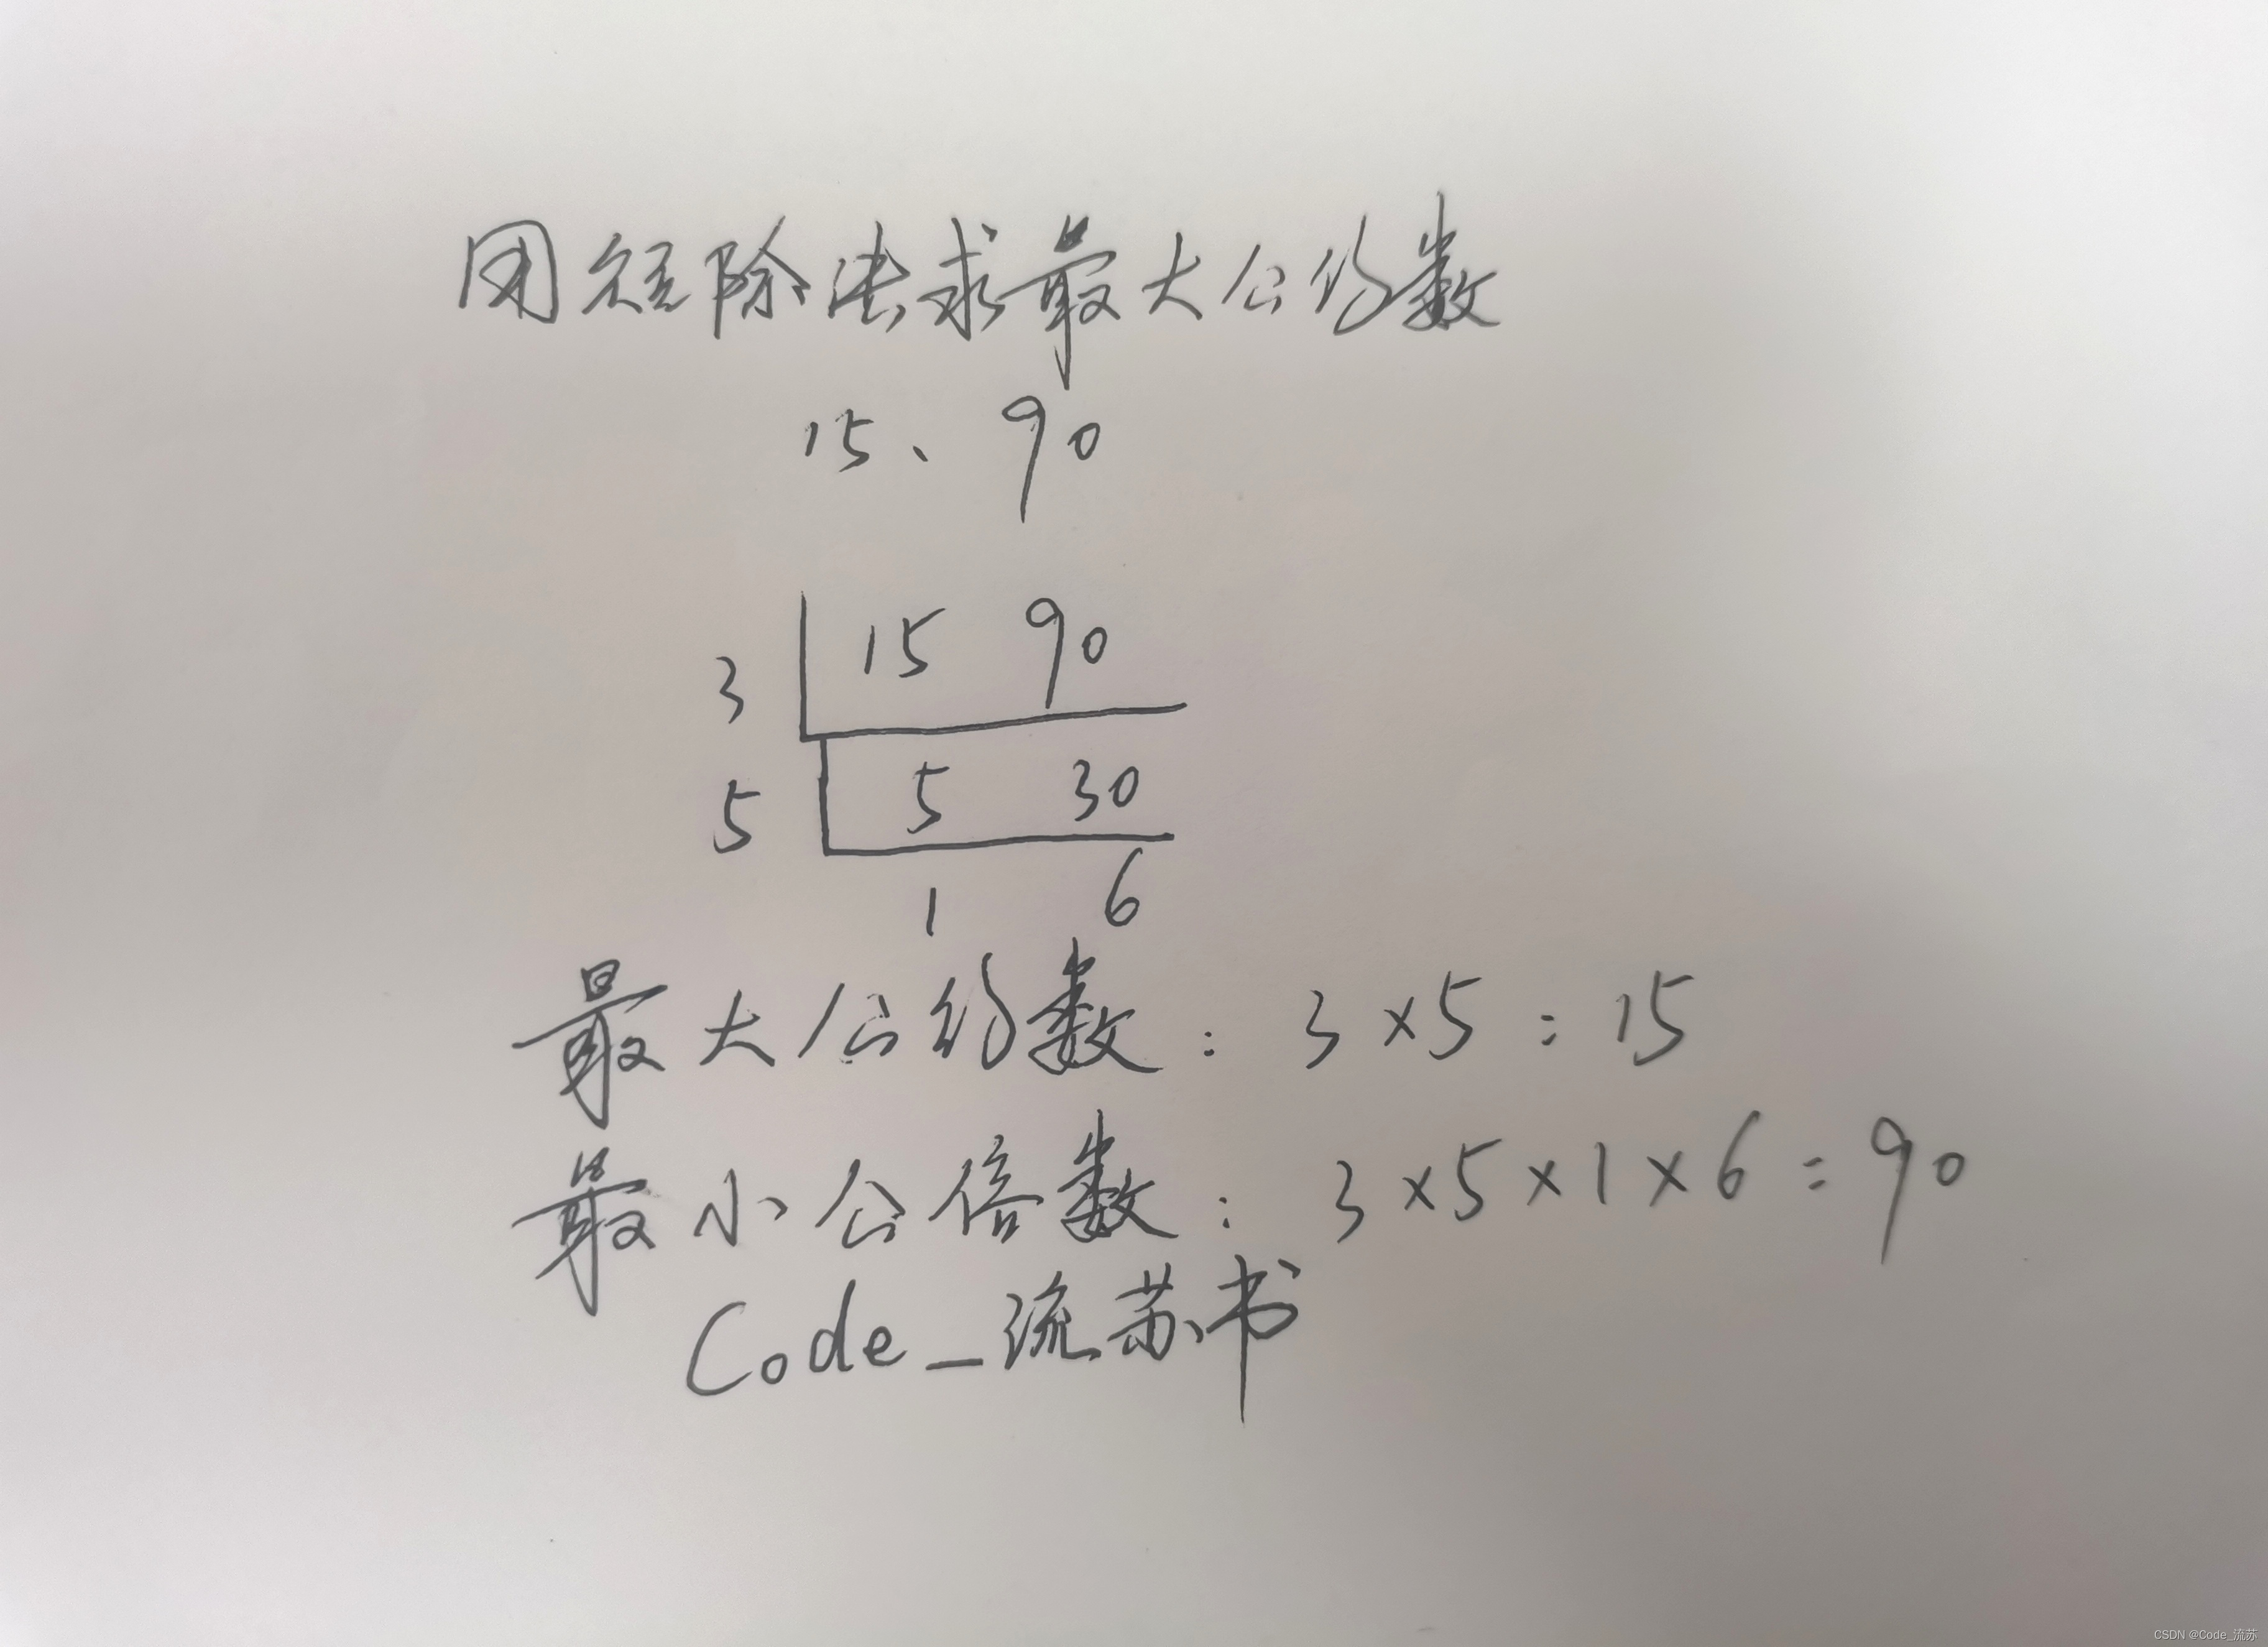 用短除法求最大公约数
15、90
3 15 90
5 5 30
1 6
最大公约数：3×5=15
最小公倍数：3×5×1×6=90
Code_流苏书
CSDN @Code_流苏